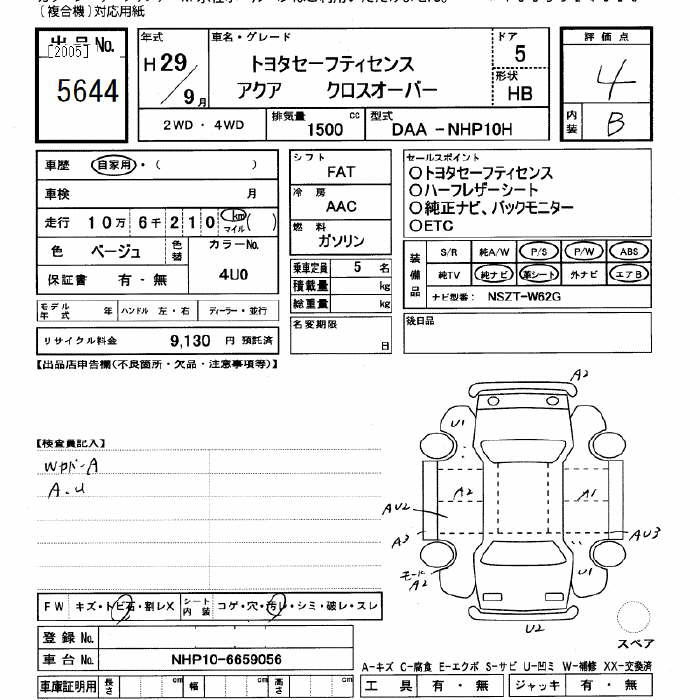 (複合機)対応用紙
出品No.
[2005]
5644
年式
H29/9月
車名・グレード
トヨタセーフティセンス
アクア クロスオーバー
ドア
5
形状
HB
2WD・4WD
排気量 1500 cc
型式 DAA -NHP10H
評価点
4
内装 B
車歴 自家用・( )
車検 月
走行 10万 6千 210 km マイル( )
色 ベージュ 色替
カラーNo.
4U0
保証書 有・無
モデル年式 年 ハンドル 左・右 ディーラー・並行
リサイクル料金 9,130 円 預託済
シフト
FAT
冷房
AAC
燃料
ガソリン
乗車定員 5 名
積載量 kg
総重量 kg
名変期限
日
セールスポイント
○トヨタセーフティセンス
○ハーフレザーシート
○純正ナビ、バックモニター
○ETC
装備品
S/R 純A/W P/S P/W ABS
純TV 純ナビ 革シート 外ナビ エアB
ナビ型番: NSZT-W62G
後日品
【出品店申告欄(不良箇所・欠品・注意事項等)】
【検査員記入】
Wカバ-A
A.U
A2
U1
A2
A1
AU2
AU3
A3
モール
A2
U1
U2
スペア
FW キズ・トビ石・割レX
シート内装 コゲ・穴・汚レ・シミ・破レ・スレ
登録No.
車台No. NHP10-6659056
車庫証明用 長さ cm 幅 cm 高さ cm
A-キズ C-腐食 E-エクボ S-サビ U-凹ミ W-補修 XX-交換済
工具 有・無 ジャッキ 有・無